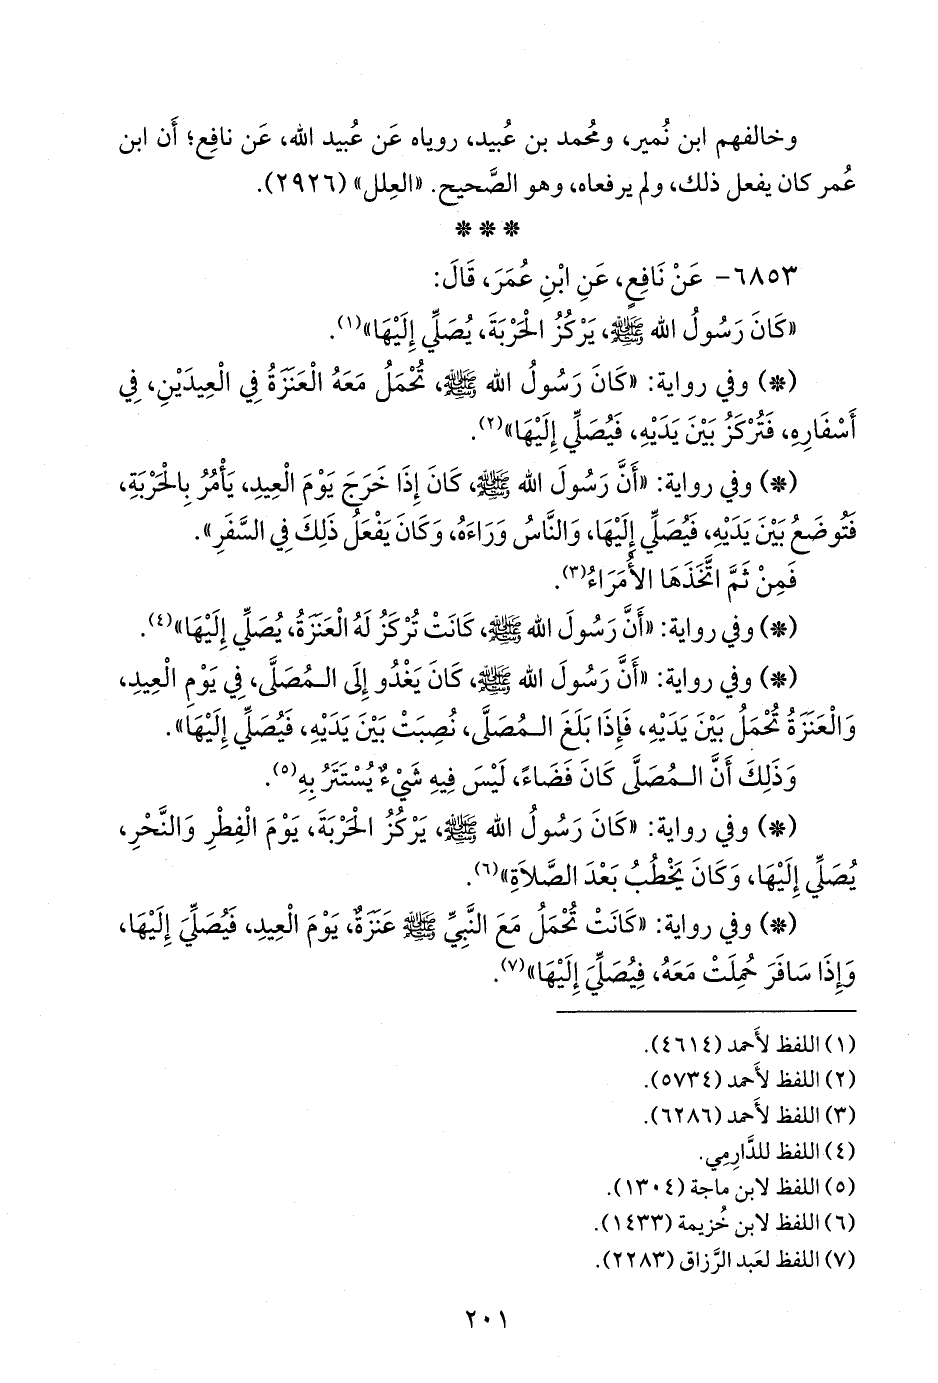 وخالفهم ابن نُمير، ومُحمد بن عُبيد، روياه عَن عُبيد الله، عَن نافِع؛ أَن ابن
عُمر كان يفعل ذلك، ولم يرفعاه، وهو الصَّحيح. «العِلل» (٢٩٢٦).
* * *
٦٨٥٣- عَنْ نَافِعٍ، عَنِ ابْنِ عُمَرَ، قَالَ:
«كَانَ رَسُولُ الله ﷺ، يَرْكُزُ الْحَرْبَةَ، يُصَلِّي إِلَيْهَا»(١).
(*) وفي رواية: «كَانَ رَسُولُ الله ﷺ، تُحْمَلُ مَعَهُ الْعَنَزَةُ فِي الْعِيدَيْنِ، فِي
أَسْفَارِهِ، فَتُرْكَزُ بَيْنَ يَدَيْهِ، فَيُصَلِّي إِلَيْهَا»(٢).
(*) وفي رواية: «أَنَّ رَسُولَ الله ﷺ، كَانَ إِذَا خَرَجَ يَوْمَ الْعِيدِ، يَأْمُرُ بِالْحَرْبَةِ،
فَتُوضَعُ بَيْنَ يَدَيْهِ، فَيُصَلِّي إِلَيْهَا، وَالنَّاسُ وَرَاءَهُ، وَكَانَ يَفْعَلُ ذَلِكَ فِي السَّفَرِ».
فَمِنْ ثَمَّ اتَّخَذَهَا الأُمَرَاءُ(٣).
(*) وفي رواية: «أَنَّ رَسُولَ الله ﷺ، كَانَتْ تُرْكَزُ لَهُ الْعَنَزَةُ، يُصَلِّي إِلَيْهَا»(٤).
(*) وفي رواية: «أَنَّ رَسُولَ الله ﷺ، كَانَ يَغْدُو إِلَى الـمُصَلَّى، فِي يَوْمِ الْعِيدِ،
وَالْعَنَزَةُ تُحْمَلُ بَيْنَ يَدَيْهِ، فَإِذَا بَلَغَ الـمُصَلَّى، نُصِبَتْ بَيْنَ يَدَيْهِ، فَيُصَلِّي إِلَيْهَا».
وَذَلِكَ أَنَّ الـمُصَلَّى كَانَ فَضَاءً، لَيْسَ فِيهِ شَيْءٌ يُسْتَتَرُ بِهِ(٥).
(*) وفي رواية: «كَانَ رَسُولُ الله ﷺ، يَرْكُزُ الْحَرْبَةَ، يَوْمَ الْفِطْرِ وَالنَّحْرِ،
يُصَلِّي إِلَيْهَا، وَكَانَ يَخْطُبُ بَعْدَ الصَّلاَةِ»(٦).
(*) وفي رواية: «كَانَتْ تُحْمَلُ مَعَ النَّبِيِّ ﷺ عَنَزَةٌ، يَوْمَ الْعِيدِ، فَيُصَلِّيَ إِلَيْهَا،
وَإِذَا سَافَرَ حُمِلَتْ مَعَهُ، فَيُصَلِّيَ إِلَيْهَا»(٧).
(١) اللفظ لأَحمد (٤٦١٤).
(٢) اللفظ لأَحمد (٥٧٣٤).
(٣) اللفظ لأَحمد (٦٢٨٦).
(٤) اللفظ للدَّارِمِي.
(٥) اللفظ لابن ماجة (١٣٠٤).
(٦) اللفظ لابن خُزيمة (١٤٣٣).
(٧) اللفظ لعَبد الرَّزاق (٢٢٨٣).
٢٠١